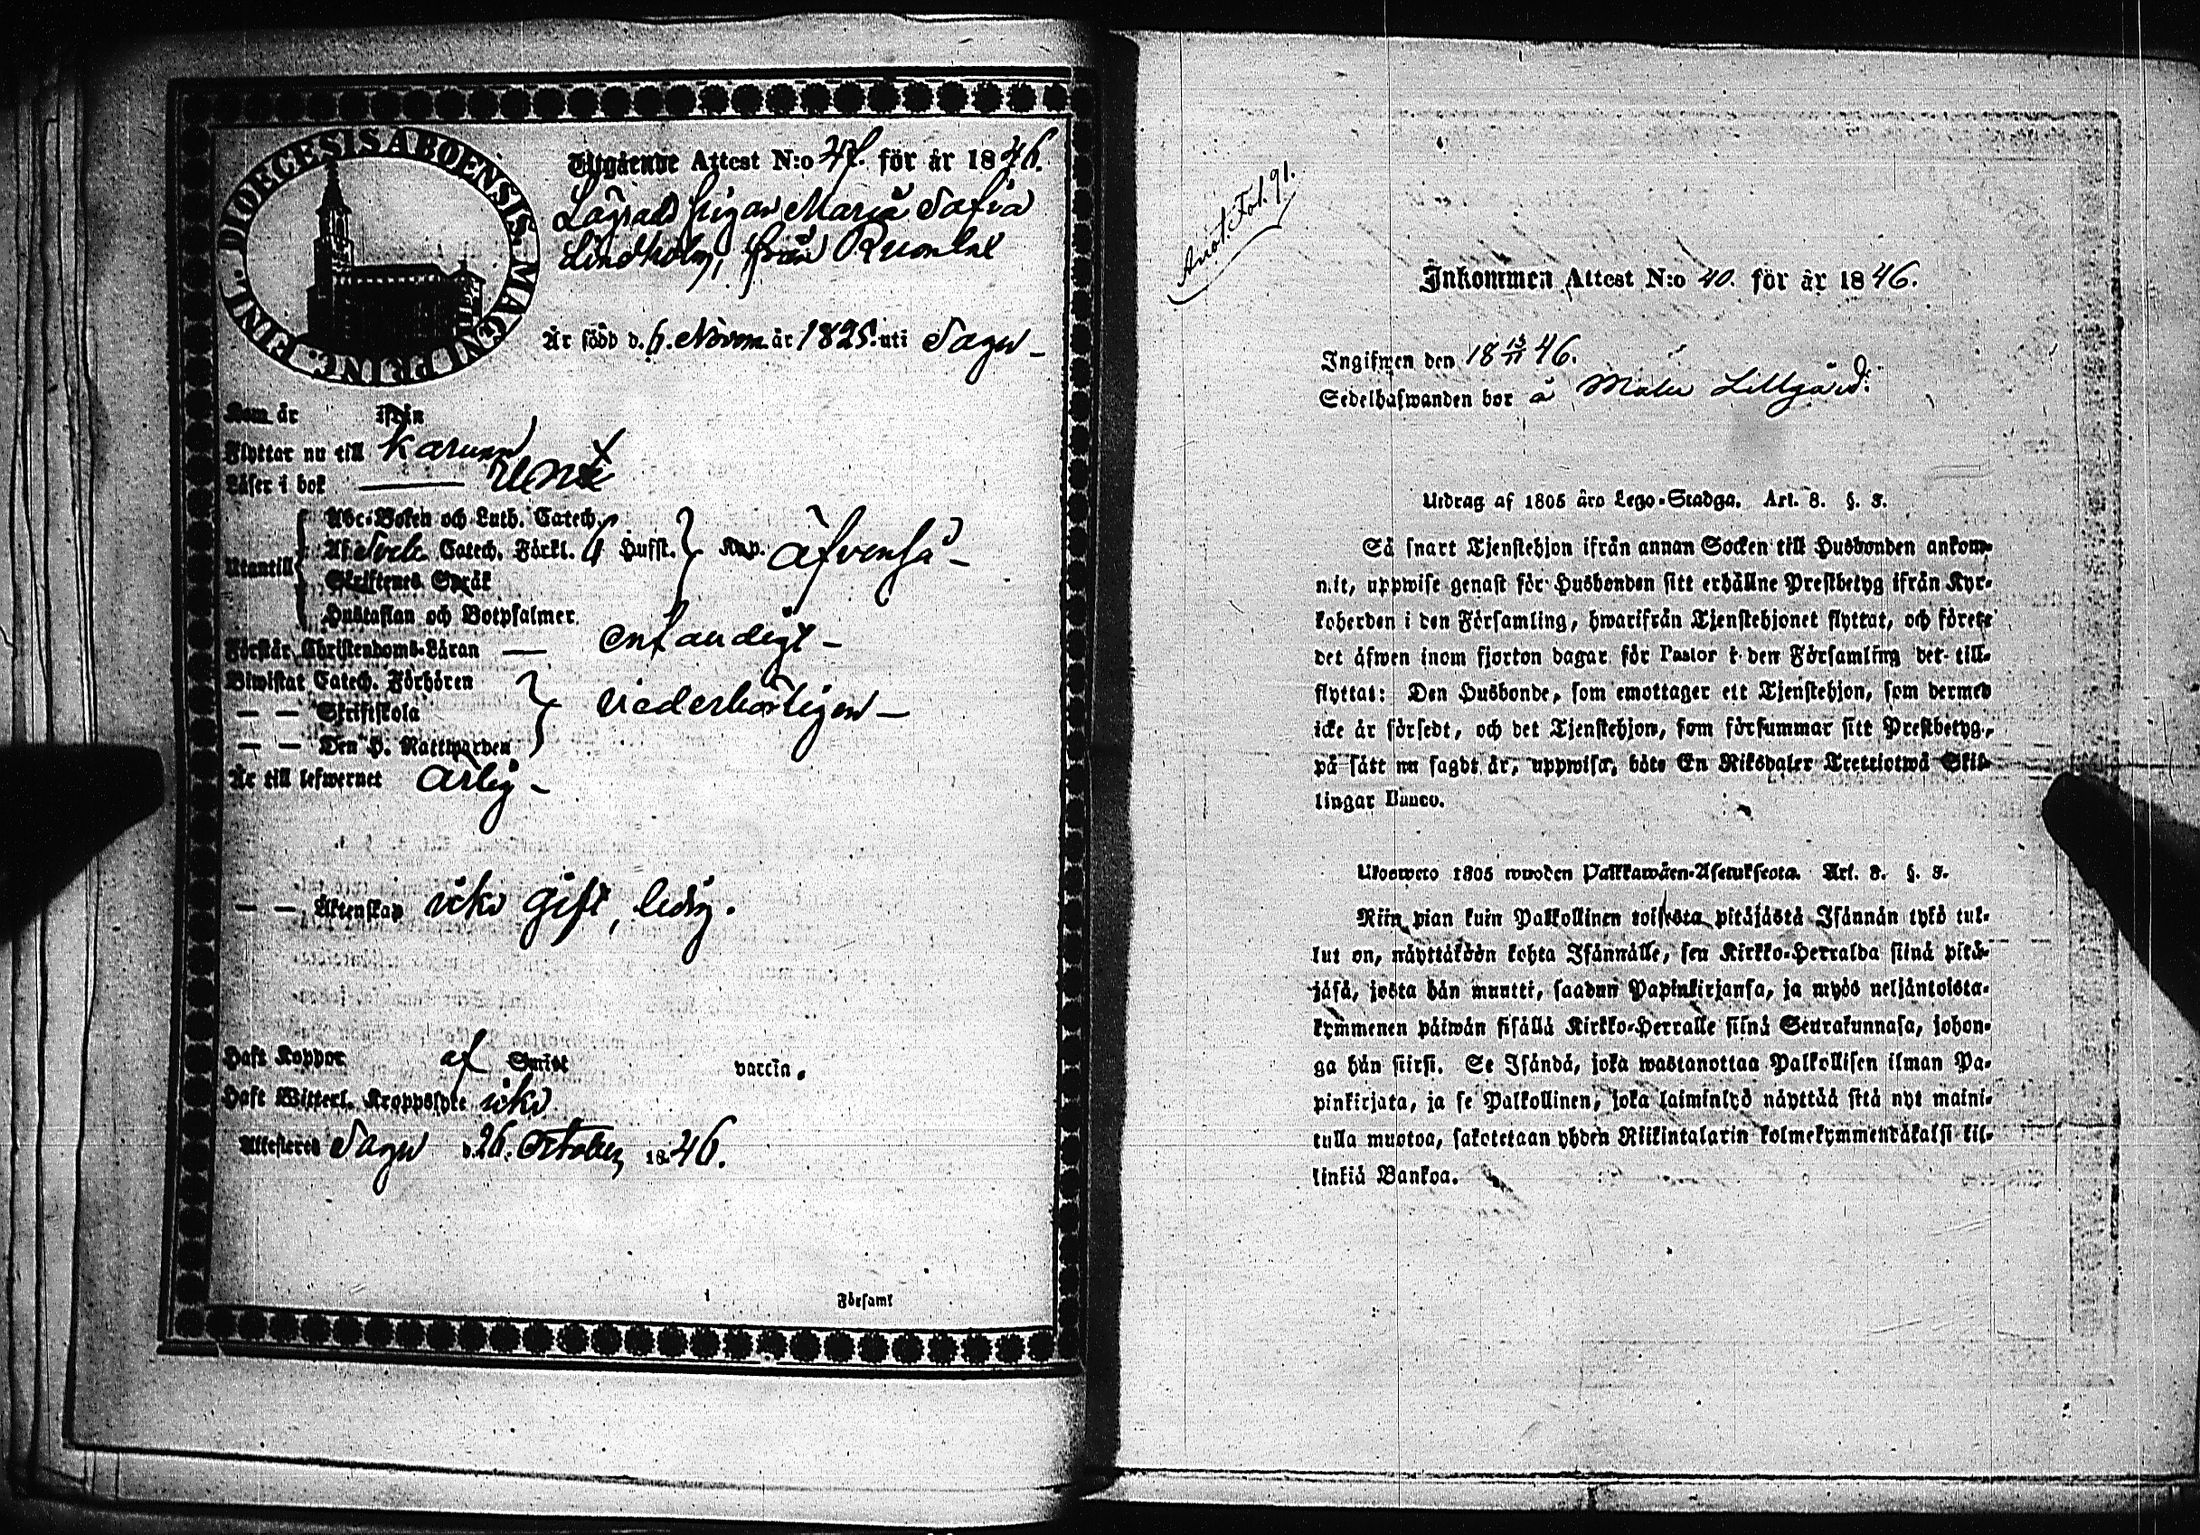 FINL. DIOECESIS ABOENSIS. MAGNI PRINC.
Utgående Attest N:o 47. för år 1846.
Pigan Maria Sofia
Lindholm, från
Är född d. 6. Novem. år 1825. uti Sagu
Kom år ifrån
Flyttar nu till Karuna
Läser i bok
Utantill
Abc-Boken och Luth. Catech.
Af Sveb. Catech. Förkl. Husst. Kap. äfvenså
Skriftenes Språk
Hustaflan och Botpsalmer.
Förstår Christendoms-Läran enfaldigt
Biwistat Catech. Förhören
— — Skriftskola vederbörligen
— — Den H. Nattwarden
Är till lefwernet ärlig
— — Äktenskap icke gift, ledig.
Haft Koppor af Smitt vaccin.
Haft Witterl. Kroppslyte icke
Attesteras Sagu d. 26. October 1846.
Församl
Anot. Fol. 91.
Inkommen Attest N:o 40. för år 1846.
Ingifwen den 18 13/11 46.
Sedelhafwanden bor å Lillgård.
Utdrag af 1805 års Lego-Stadga. Art. 3. §. 3.
Så snart Tjenstehjon ifrån annan Socken till Husbonden ankom-
mit, uppwise genast för Husbonden sitt erhållne Prestbetyg ifrån Kyr-
koherden i den Församling, hwarifrån Tjenstehjonet flyttat, och förete
det äfwen inom fjorton dagar för Pastor i den Församling det till-
flyttat: Den Husbonde, som emottager ett Tjenstehjon, som dermed
icke är försedt, och det Tjenstehjon, som försummar sitt Prestbetyg,
på sätt nu sagdt är, uppwisa, böte En Riksdaler Trettiotwå Skil-
lingar Banco.
Ulosweto 1805 wuoden Palkkawäen-Asetuksesta. Art. 3. §. 3.
Niin pian kuin Palkollinen toisesta pitäjästä Isännän tykö tul-
lut on, näyttäköön kohta Isännälle, sen Kirkko-Herralda siinä pitä-
jäsä, josta hän muutti, saadun Papinkirjansa, ja myös neljäntoista-
kymmenen päiwän sisällä Kirkko-Herralle siinä Seurakunnasa, johon-
ga hän siirsi. Se Isändä, joka wastanottaa Palkollisen ilman Pa-
pinkirjata, ja se Palkollinen, joka laiminlyö näyttää sitä nyt maini-
tulla muotoa, sakotetaan yhden Riikintalarin kolmekymmendäkaksi kil-
linkiä Bankoa.